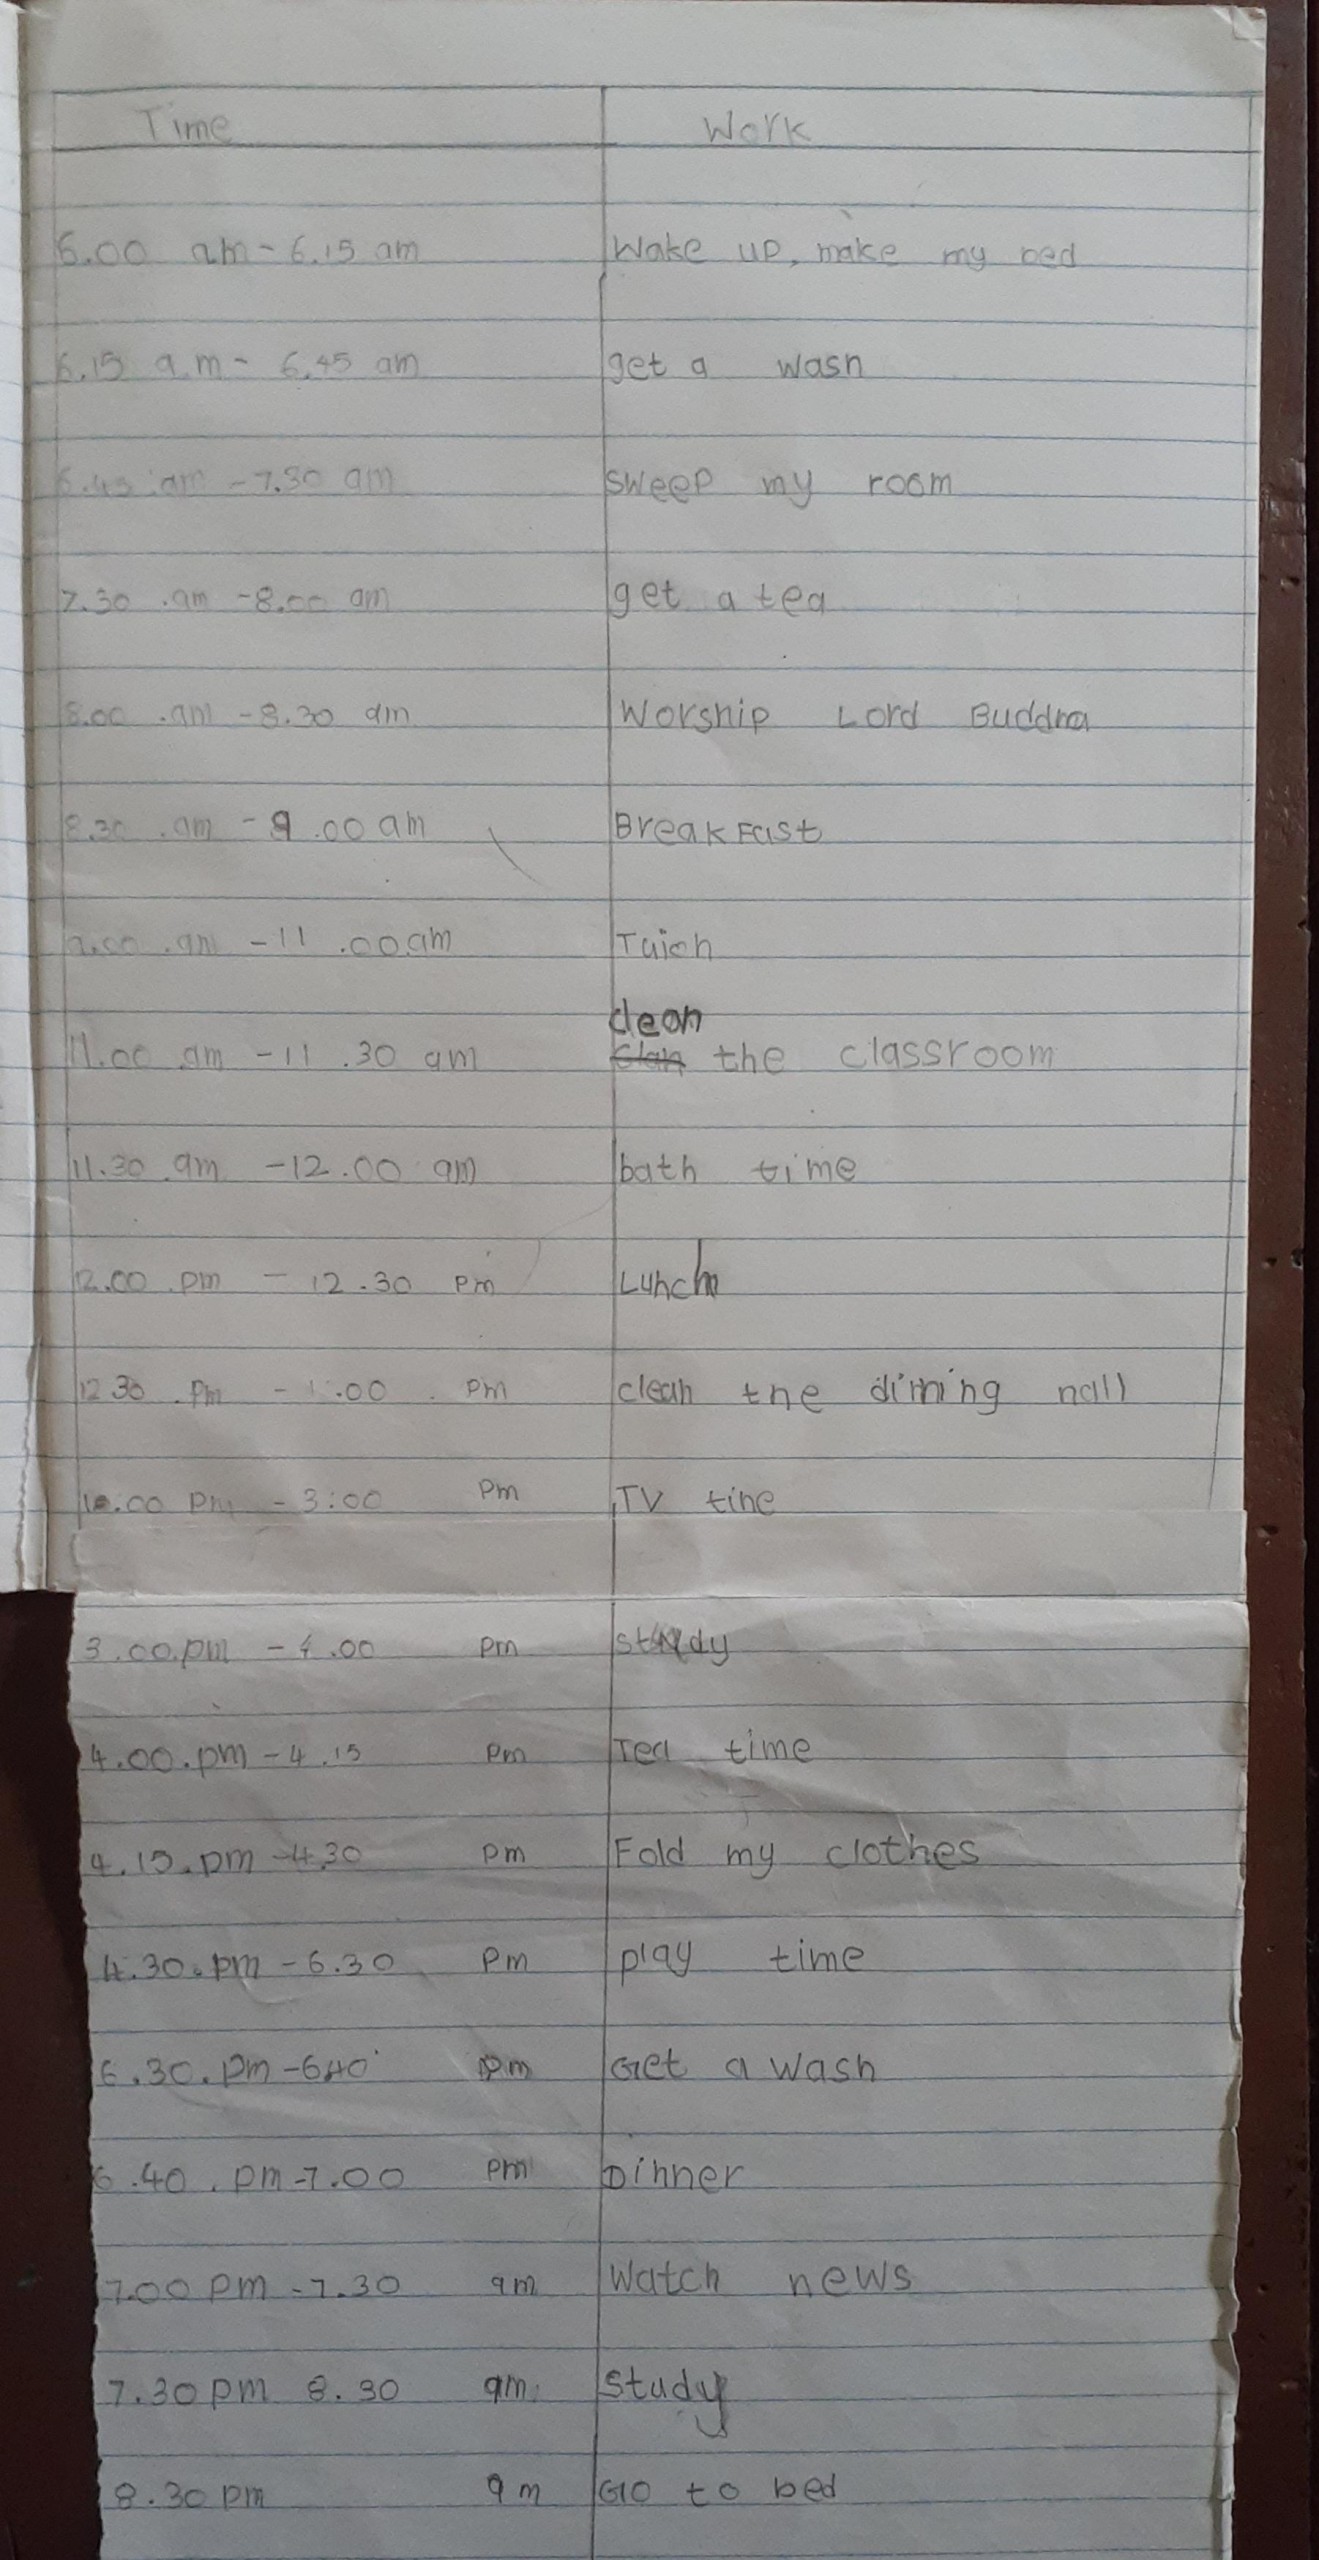 Time Work
6.00 am - 6.15 am Wake up, make my bed
6.15 a.m - 6.45 am get a wash
6.45 am - 7.30 am sweep my room
7.30 .am - 8.00 am get a tea
8.00 .am - 8.30 am Worship Lord Buddha
8.30 .am - 9.00 am BreakFast
9.00 .am - 11 .00 am
clean
11.00 am - 11 .30 am Clan the classroom
11.30 am - 12.00 am bath time
12.00 pm - 12.30 pm Lunch
12 30 .pm - 1.00 . pm clean the dining hall
1.00 pm - 3:00 pm TV tine
3.00.pm - 4.00 pm study
4.00.pm - 4.15 pm Tea time
4.15.pm - 4.30 pm Fold my clothes
4.30.pm - 6.30 pm play time
6.30.pm - 6.40 pm Get a wash
6.40 .pm - 7.00 pm Dinner
7.00 pm - 7.30 am Watch news
7.30 pm 8.30 am. study
8.30 pm am Go to bed